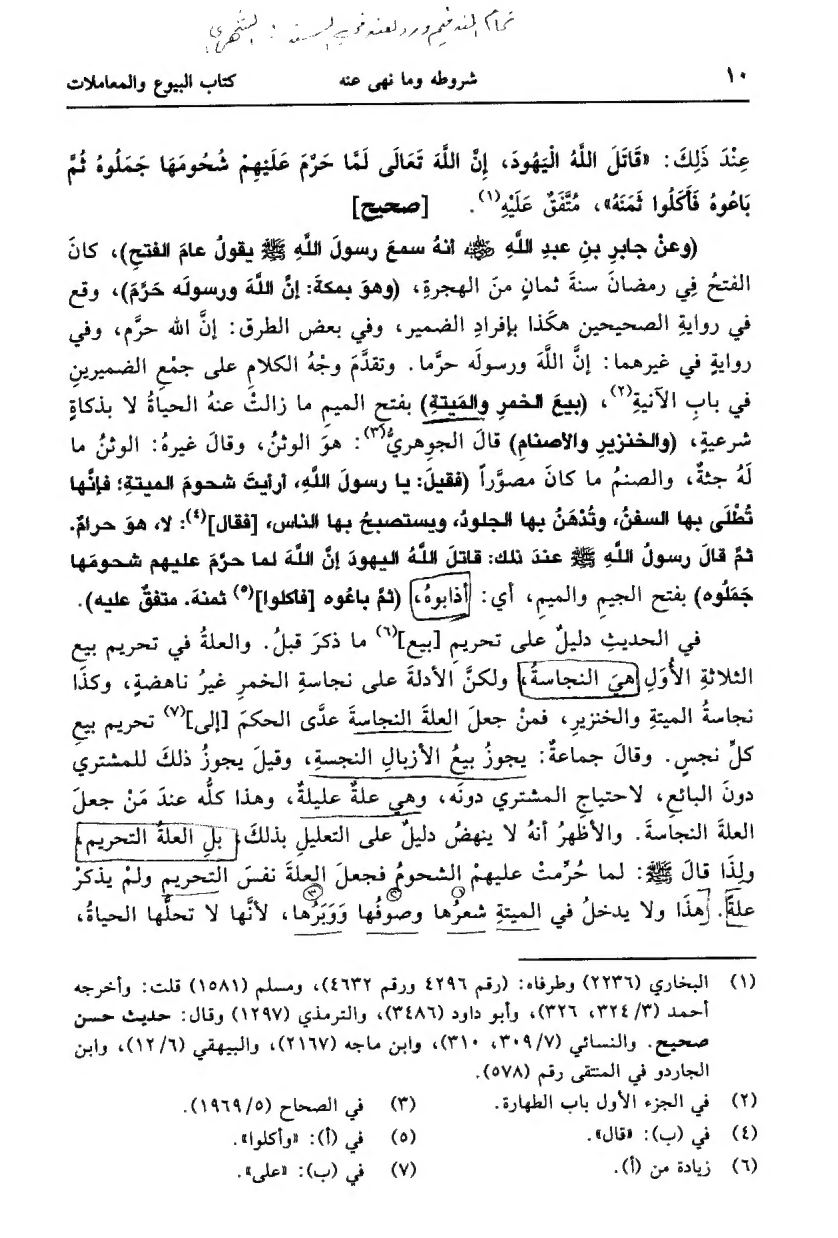 ١٠ شروطه وما نهى عنه كتاب البيوع والمعاملات
عِنْدَ ذَلِكَ: «قَاتَلَ اللَّهُ الْيَهُودَ، إِنَّ اللَّهَ تَعَالَى لَمَّا حَرَّمَ عَلَيْهِمْ شُحُومَهَا جَمَلُوهُ ثُمَّ
بَاعُوهُ فَأَكَلُوا ثَمَنَهُ»، مُتَّفَقٌ عَلَيْهِ(١). [صحيح]
(وعنْ جابرِ بنِ عبدِ اللَّهِ ﵁ أنهُ سمعَ رسولَ اللَّهِ ﷺ يقولُ عامَ الفتحِ)، كانَ
الفتحُ فِي رمضانَ سنةَ ثمانٍ منَ الهجرةِ، (وهوَ بمكةَ: إنَّ اللَّهَ ورسولَه حَرَّمَ)، وقع
في روايةِ الصحيحين هكَذا بإفرادِ الضمير، وفي بعض الطرق: إنَّ الله حرَّم، وفي
روايةٍ في غيرهما: إنَّ اللَّهَ ورسولَه حرَّما. وتقدَّمَ وجْهُ الكلامِ على جمْعِ الضميرينِ
في بابِ الآنيةِ(٢)، (بيعَ الخمرِ والمَيتةِ) بفتحِ الميمِ ما زالتْ عنهُ الحياةُ لا بذكاةٍ
شرعيةٍ، (والخنزيرِ والأصنامِ) قالَ الجوهريُّ(٣): هوَ الوثنُ، وقالَ غيرهُ: الوثنُ ما
لَهُ جثةٌ، والصنمُ ما كانَ مصوَّراً (فقيلَ: يا رسولَ اللَّهِ، أرأيتَ شحومَ الميتةِ؛ فإنَّها
تُطْلَى بها السفنُ، وتُدْهَنُ بها الجلودُ، ويستصبحُ بها الناس، [فقال](٤): لا، هوَ حرامٌ.
ثمَّ قالَ رسولُ اللَّهِ ﷺ عندَ ذلك: قاتلَ اللَّهُ اليهودَ إنَّ اللَّهَ لما حرَّمَ عليهم شحومَها
جَمَلُوه) بفتح الجيم والميم، أي: أذابوهُ، (ثمَّ باعُوه [فأكلوا](٥) ثمنهَ. متفقٌ عليه).
في الحديثِ دليلٌ على تحريمِ [بيع](٦) ما ذكرَ قبلُ. والعلةُ في تحريم بيع
الثلاثةِ الأُوَلِ هيَ النجاسةُ، ولكنَّ الأدلةَ على نجاسةِ الخمرِ غيرُ ناهضةٍ، وكذَا
نجاسةُ الميتةِ والخنزيرِ، فمنْ جعلَ العلةَ النجاسةَ عدَّى الحكمَ [إلى](٧) تحريم بيعِ
كلِّ نجسٍ. وقالَ جماعةٌ: يجوزُ بيعُ الأزبالِ النجسةِ، وقيلَ يجوزُ ذلكَ للمشتري
دونَ البائعِ، لاحتياجِ المشتري دونَه، وهي علةٌ عليلةٌ، وهذا كلُّه عندَ مَنْ جعلَ
العلةَ النجاسةَ. والأظهرُ أنهُ لا ينهضُ دليلٌ على التعليلِ بذلكَ، بلِ العلةُ التحريم،
ولِذَا قالَ ﷺ: لما حُرِّمتْ عليهمْ الشحومُ فجعلَ العلةَ نفسَ التحريمِ ولمْ يذكرْ
علةً. هذَا ولا يدخلُ في الميتةِ شعرُها وصوفُها وَوَبَرُها، لأنَّها لا تحلُّها الحياةُ،
١ ٢ ٣
(١) البخاري (٢٢٣٦) وطرفاه: (رقم ٤٢٩٦ ورقم ٤٦٣٢)، ومسلم (١٥٨١) قلت: وأخرجه
أحمد (٣/ ٣٢٤، ٣٢٦)، وأبو داود (٣٤٨٦)، والترمذي (١٢٩٧) وقال: حديث حسن
صحيح. والنسائي (٧/ ٣٠٩، ٣١٠)، وابن ماجه (٢١٦٧)، والبيهقي (٦/ ١٢)، وابن
الجاردو في المنتقى رقم (٥٧٨).
(٢) في الجزء الأول باب الطهارة. (٣) في الصحاح (٥/ ١٩٦٩).
(٤) في (ب): «قال». (٥) في (أ): «وأكلوا».
(٦) زيادة من (أ). (٧) في (ب): «على».